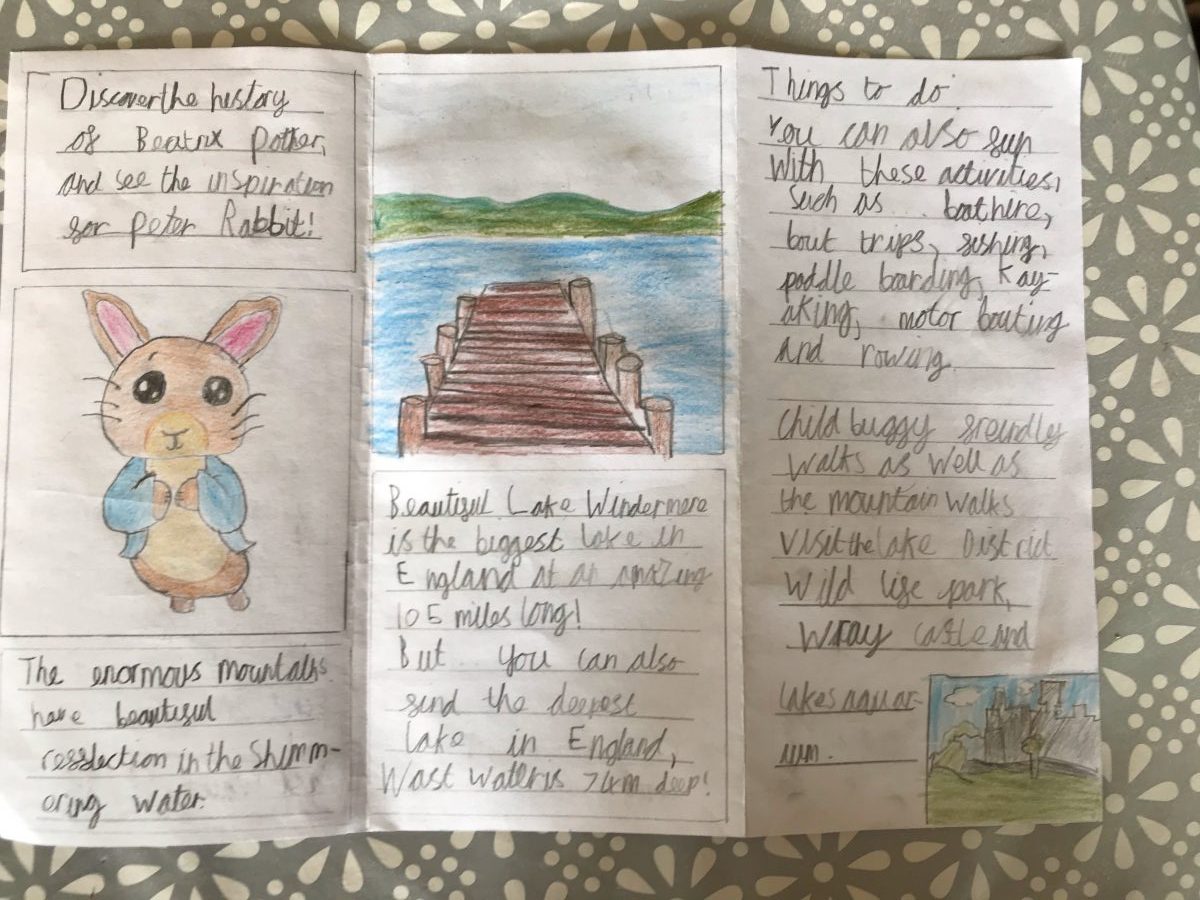 Discover the history
of Beatrix Potter,
and see the inspiration
for peter Rabbit!
The enormous mountains
have beautiful
reflection in the Shimm-
oring water.
Beautiful Lake Windermere
is the biggest lake in
England at an amazing
10 5 miles long!
But you can also
find the deepest
lake in England,
Wast Water is 74m deep!
Things to do.
You can also fun
With these activities,
Such as boat hire,
bout trips, fishing,
paddle boarding, Kay-
aking, motor bouting
and rowing.
Child buggy freindley
walks as well as
the mountain walks
visit the lake District
Wild life park,
Wray castle and
lakes aquar-
ium.